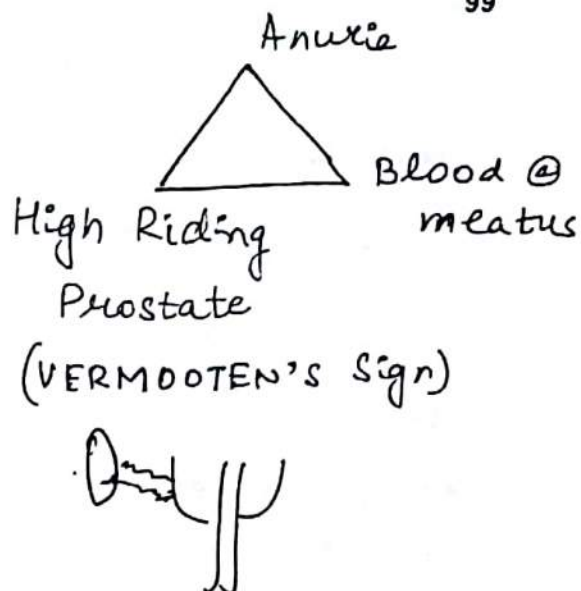 99
Anuria
Blood @
meatus
High Riding
Prostate
(VERMOOTEN'S Sign)